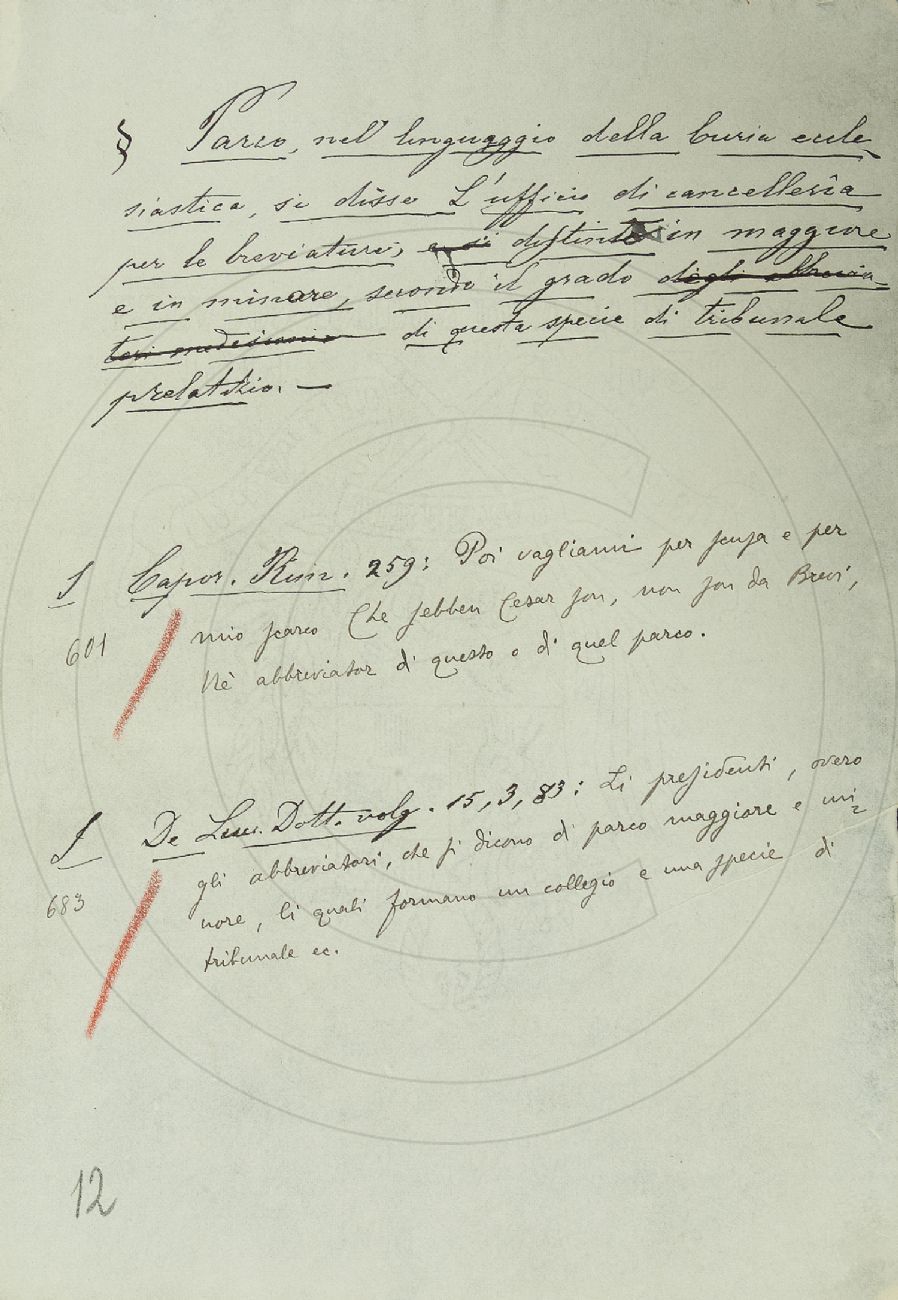 § Parco, nel linguaggio della Curia eccle-
siastica, si disse L'ufficio di cancelleria
per le breviature, e si distinto in maggiore
e in minore, secondo il grado degli abbrevia-
tori medesimi di questa specie di tribunale
prelatizio. —
S Capor. Rim. 259: Poi vagliami per scusa e per
601 mio scarco Che sebben Cesar son, non son da Brevi,
Nè abbreviator di questo o di quel parco.
S De Luc. Dott. volg. 15, 3, 83: Li presidenti, overo
683 gli abbreviatori, che si dicono di parco maggiore e mi=
nore, li quali formano un collegio e una specie di
tribunale ec.
12